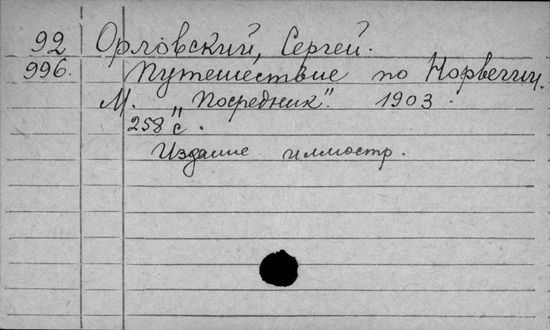 92 Орловский, Сергей.
996. Путешествие по Норвегии.
М. „Посредник". 1903.
258 с.
Издание иллюстр.